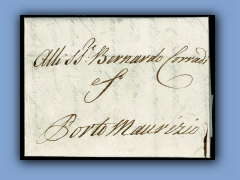 Alli SS.ri Bernardo Corradi
Porto Maurizio